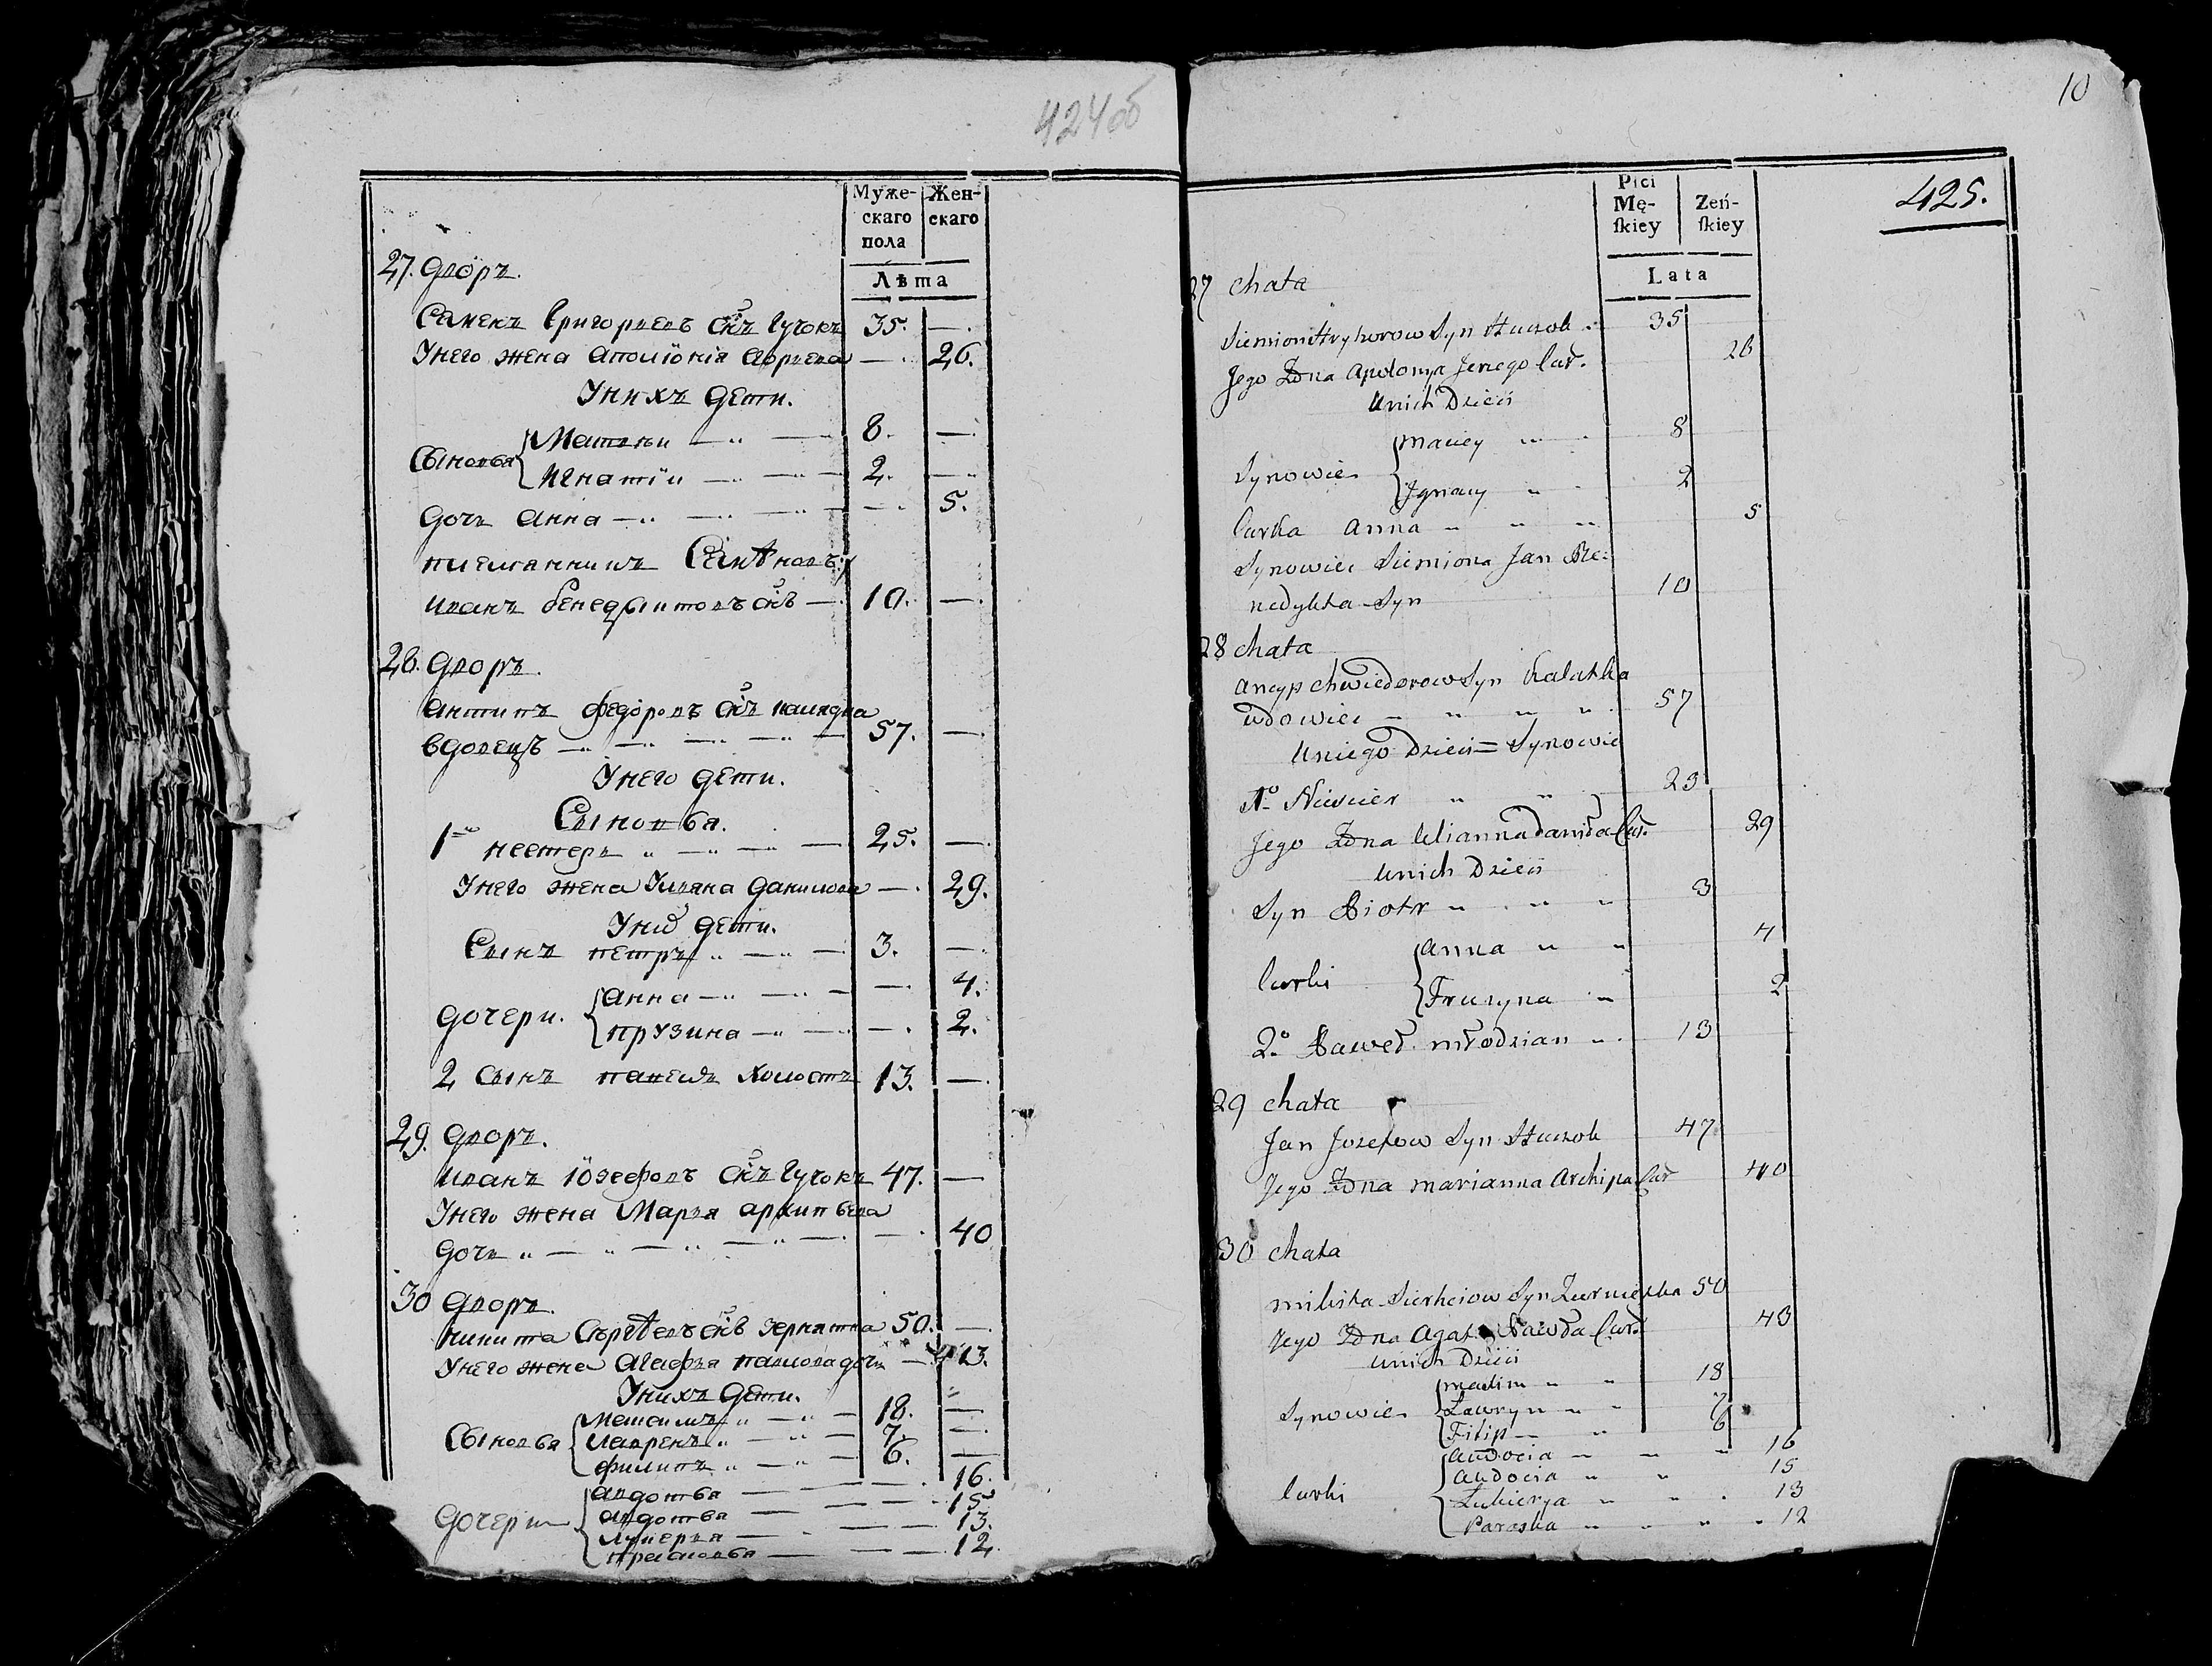 424об
Муже-
скаго
пола
Жен-
скаго
Лѣта
27. Дворъ.
Семенъ Григорьевъ снъ Гучокъ 35. —.
У него жена Аполіоніа — 26.
У нихъ дети.
Сыновья
Матвѣи — 8. —
Игнатіи — 2. —
Дочь Анна — 5.
племянникъ
Иванъ Бенедыктовъ снъ — 10. —
28. Дворъ.
Антипъ Федоровъ снъ
вдовецъ — 57. —
У него дети.
Сыновья.
1й Нестеръ — 25. —
У него жена Ульяна Данилова — 29.
У них дети.
Сынъ Петръ — 3. —
Дочери.
Анна — 4.
Прузина — 2.
2 Сынъ Павелъ холостъ 13. —
29. Дворъ.
Иванъ Іозефовъ снъ Гучокъ 47. —
У него жена Марья Архипьева
Дочь — 40
30 Дворъ.
Никита снъ 50. —
У него жена Агафья Павлова дочь — 43.
У нихъ дети.
Сыновья
Максимъ — 18. —
Лавренъ — 7. —
Филипъ — 6. —
Дочери
Авдотья — 16.
Авдотья — 15
Лукерья — 13.
— 12.
10
425.
Pici
Mę-
ſkiey
Zeń-
ſkiey
Lata
27 chata
Siemion Hryhorow Syn Huczok 35
Jego Żona Apolonya Cur. 26
U nich Dzieci
Synowie
Maciey 8
Ignacy 2
Curka Anna 5
Synowiec Siemiona Jan Be-
nedykta Syn 10
28 chata
Ancyp Chwiedorow Syn Kalutka
wdowiec 57
U niego Dzieci = Synowie
1o 25
Jego Żona Ulianna Daniła Cur. 29
U nich Dzieci
Syn Piotr 3
Curki
Anna 4
Fruzyna 2
2o Paweł młodzian 13
29 chata
Jan Jozefow Syn Huczok 47
Jego Żona Marianna Archipa Cur 40
30 chata
Mikita Sierheiow Syn 50
Jego Żona Agata Pawła Cur. 43
U nich Dzieci
Synowie
Maxim 18
Ławryn 7
Filip 6
Curki
Audocia 16
Audocia 15
Łukierya 13
Paraska 12